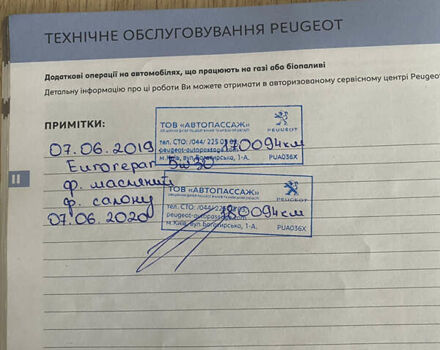 ТЕХНІЧНЕ ОБСЛУГОВУВАННЯ PEUGEOT
Додаткові операції на автомобілях, що працюють на газі або біопаливі
Детальну інформацію про ці роботи Ви можете отримати в авторизованому сервісному центрі Peugeot
ПРИМІТКИ:
ТОВ «АВТОПАССАЖ»
PEUGEOT
07.06.2019
170094км
тел. СТО: /044/ 225 0
peugeot-autopassage.com
м.Київ, вул. Богатирська, 1-А.
PUA036X
Eurorepar 5w30
ф. масляний
ТОВ «АВТОПАССАЖ»
PEUGEOT
ф. салону
тел. СТО: /044/ 225
07.06.2020
180094км
peugeot-autopassage.com
м.Київ, вул. Богатирська, 1-А.
PUA036X